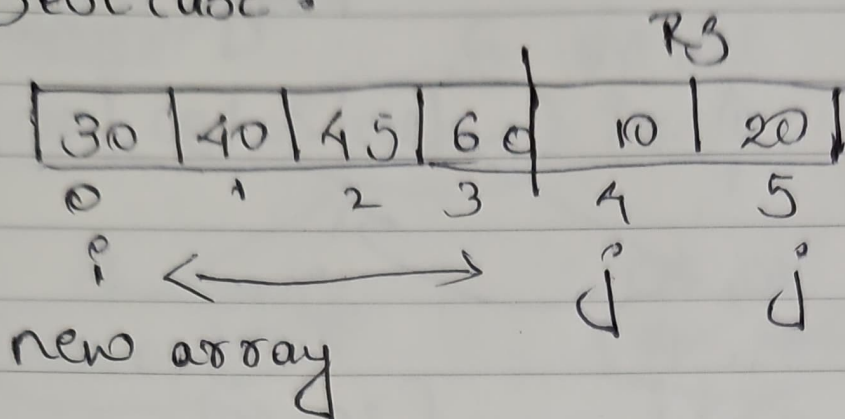 RS
30 | 40 | 45 | 60 | 10 | 20
0 1 2 3 4 5
i j j
new array